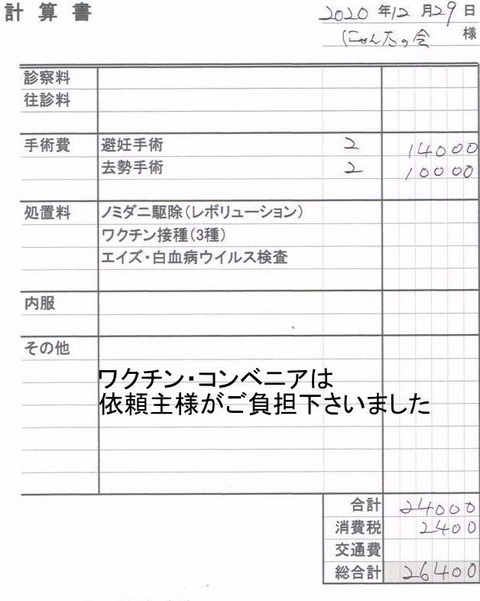 計算書
2020年12月29日
にゃんたの会 様
診察料
往診料
手術費 避妊手術 2 14000
去勢手術 2 10000
処置料 ノミダニ駆除(レボリューション)
ワクチン接種(3種)
エイズ・白血病ウイルス検査
内服
その他
ワクチン・コンベニアは
依頼主様がご負担下さいました
合計 24000
消費税 2400
交通費
総合計 26400